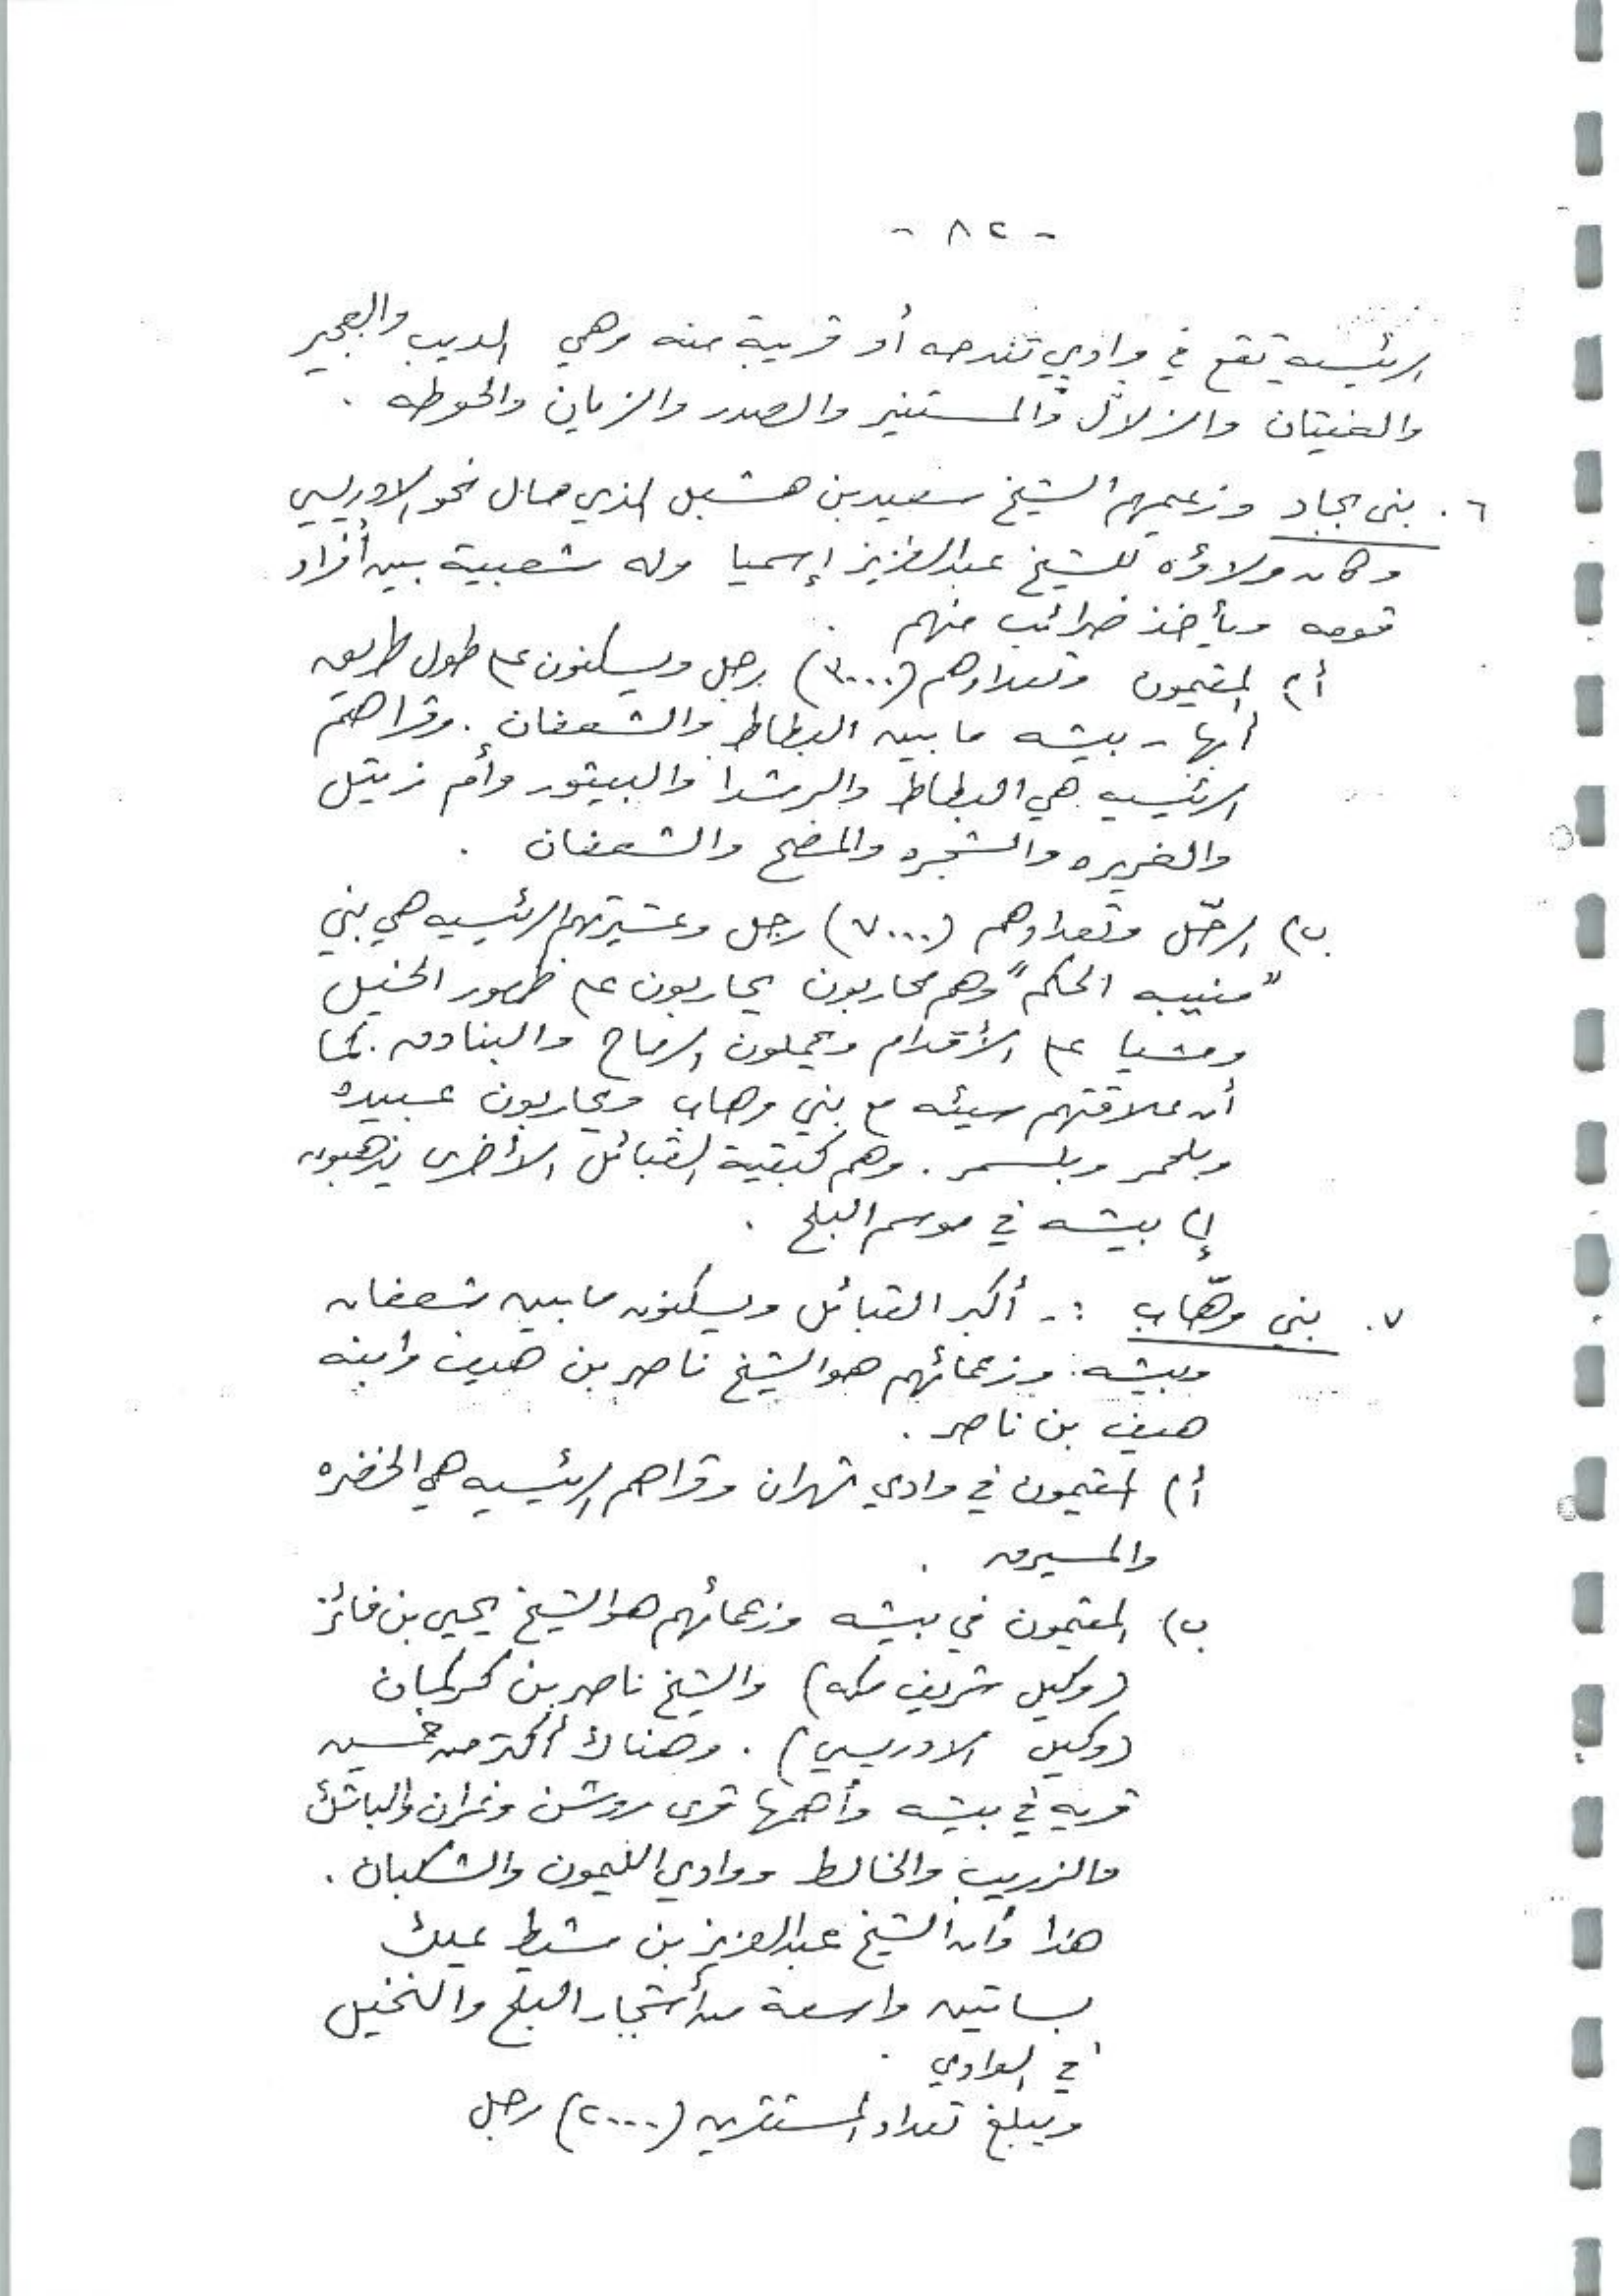 - ٨٢ -
الرئيسيه تقع في وادي تندحه أو قريبة منه وهي الديب والعجير
والفيتان والزلال والمستنير والصدر والزيان والحوطه .
٦. بني بجاد وزعيمهم الشيخ سعيد بن هشبل الذي مال نحو الادريسي
وكان ولاؤه للشيخ عبدالعزيز إسميا وله شعبية بين أفراد
قومه ويأخذ ضرائب منهم .
أ) المقيمون وتعدادهم (٣٠٠٠) رجل ويسكنون على طول طريق
أبها - بيشه ما بين البطاط والشعفان . وقراهم
الرئيسيه هي البطاط والرشدا والبيتور وأم زيتل
والغريره والشجره والمضح والشعفان .
ب) الرحّل وتعدادهم (٧٠٠٠) رجل وعشيرتهم الرئيسيه هي بني
"منيبه الحكم" وهم محاربون يحاربون على ظهور الخيل
ومشيا على الأقدام ويحملون الرماح والبنادق . كما
أن علاقتهم سيئه مع بني وهاب ويحاربون عبيده
وبلحمر وبلسمر . وهم كبقية القبائل الأخرى يذهبون
إلى بيشه في موسم البلح .
٧. بني وهّاب :- أكبر القبائل ويسكنون ما بين شعفان
وبيشه . وزعمائهم هو الشيخ ناصر بن هيف وابنه
هيف بن ناصر .
أ) المقيمون في وادي شهران وقراهم الرئيسيه هي الخضره
والمسيرق .
ب) المقيمون في بيشه وزعمائهم هو الشيخ يحيى بن فائز
(وكيل شريف مكه) والشيخ ناصر بن كركمان
(وكيل الادريسي) . وهناك أكثر من خمسين
قريه في بيشه وأهمها قرى روشن ونمران والباشك
والزريب والخالط ووادي الليمون والشكبان .
هذا وأن الشيخ عبدالعزيز بن مشيط يملك
بساتين واسعة من أشجار البلح والنخيل
في الوادي .
ويبلغ تعداد المستقرين (٢٠٠٠) رجل